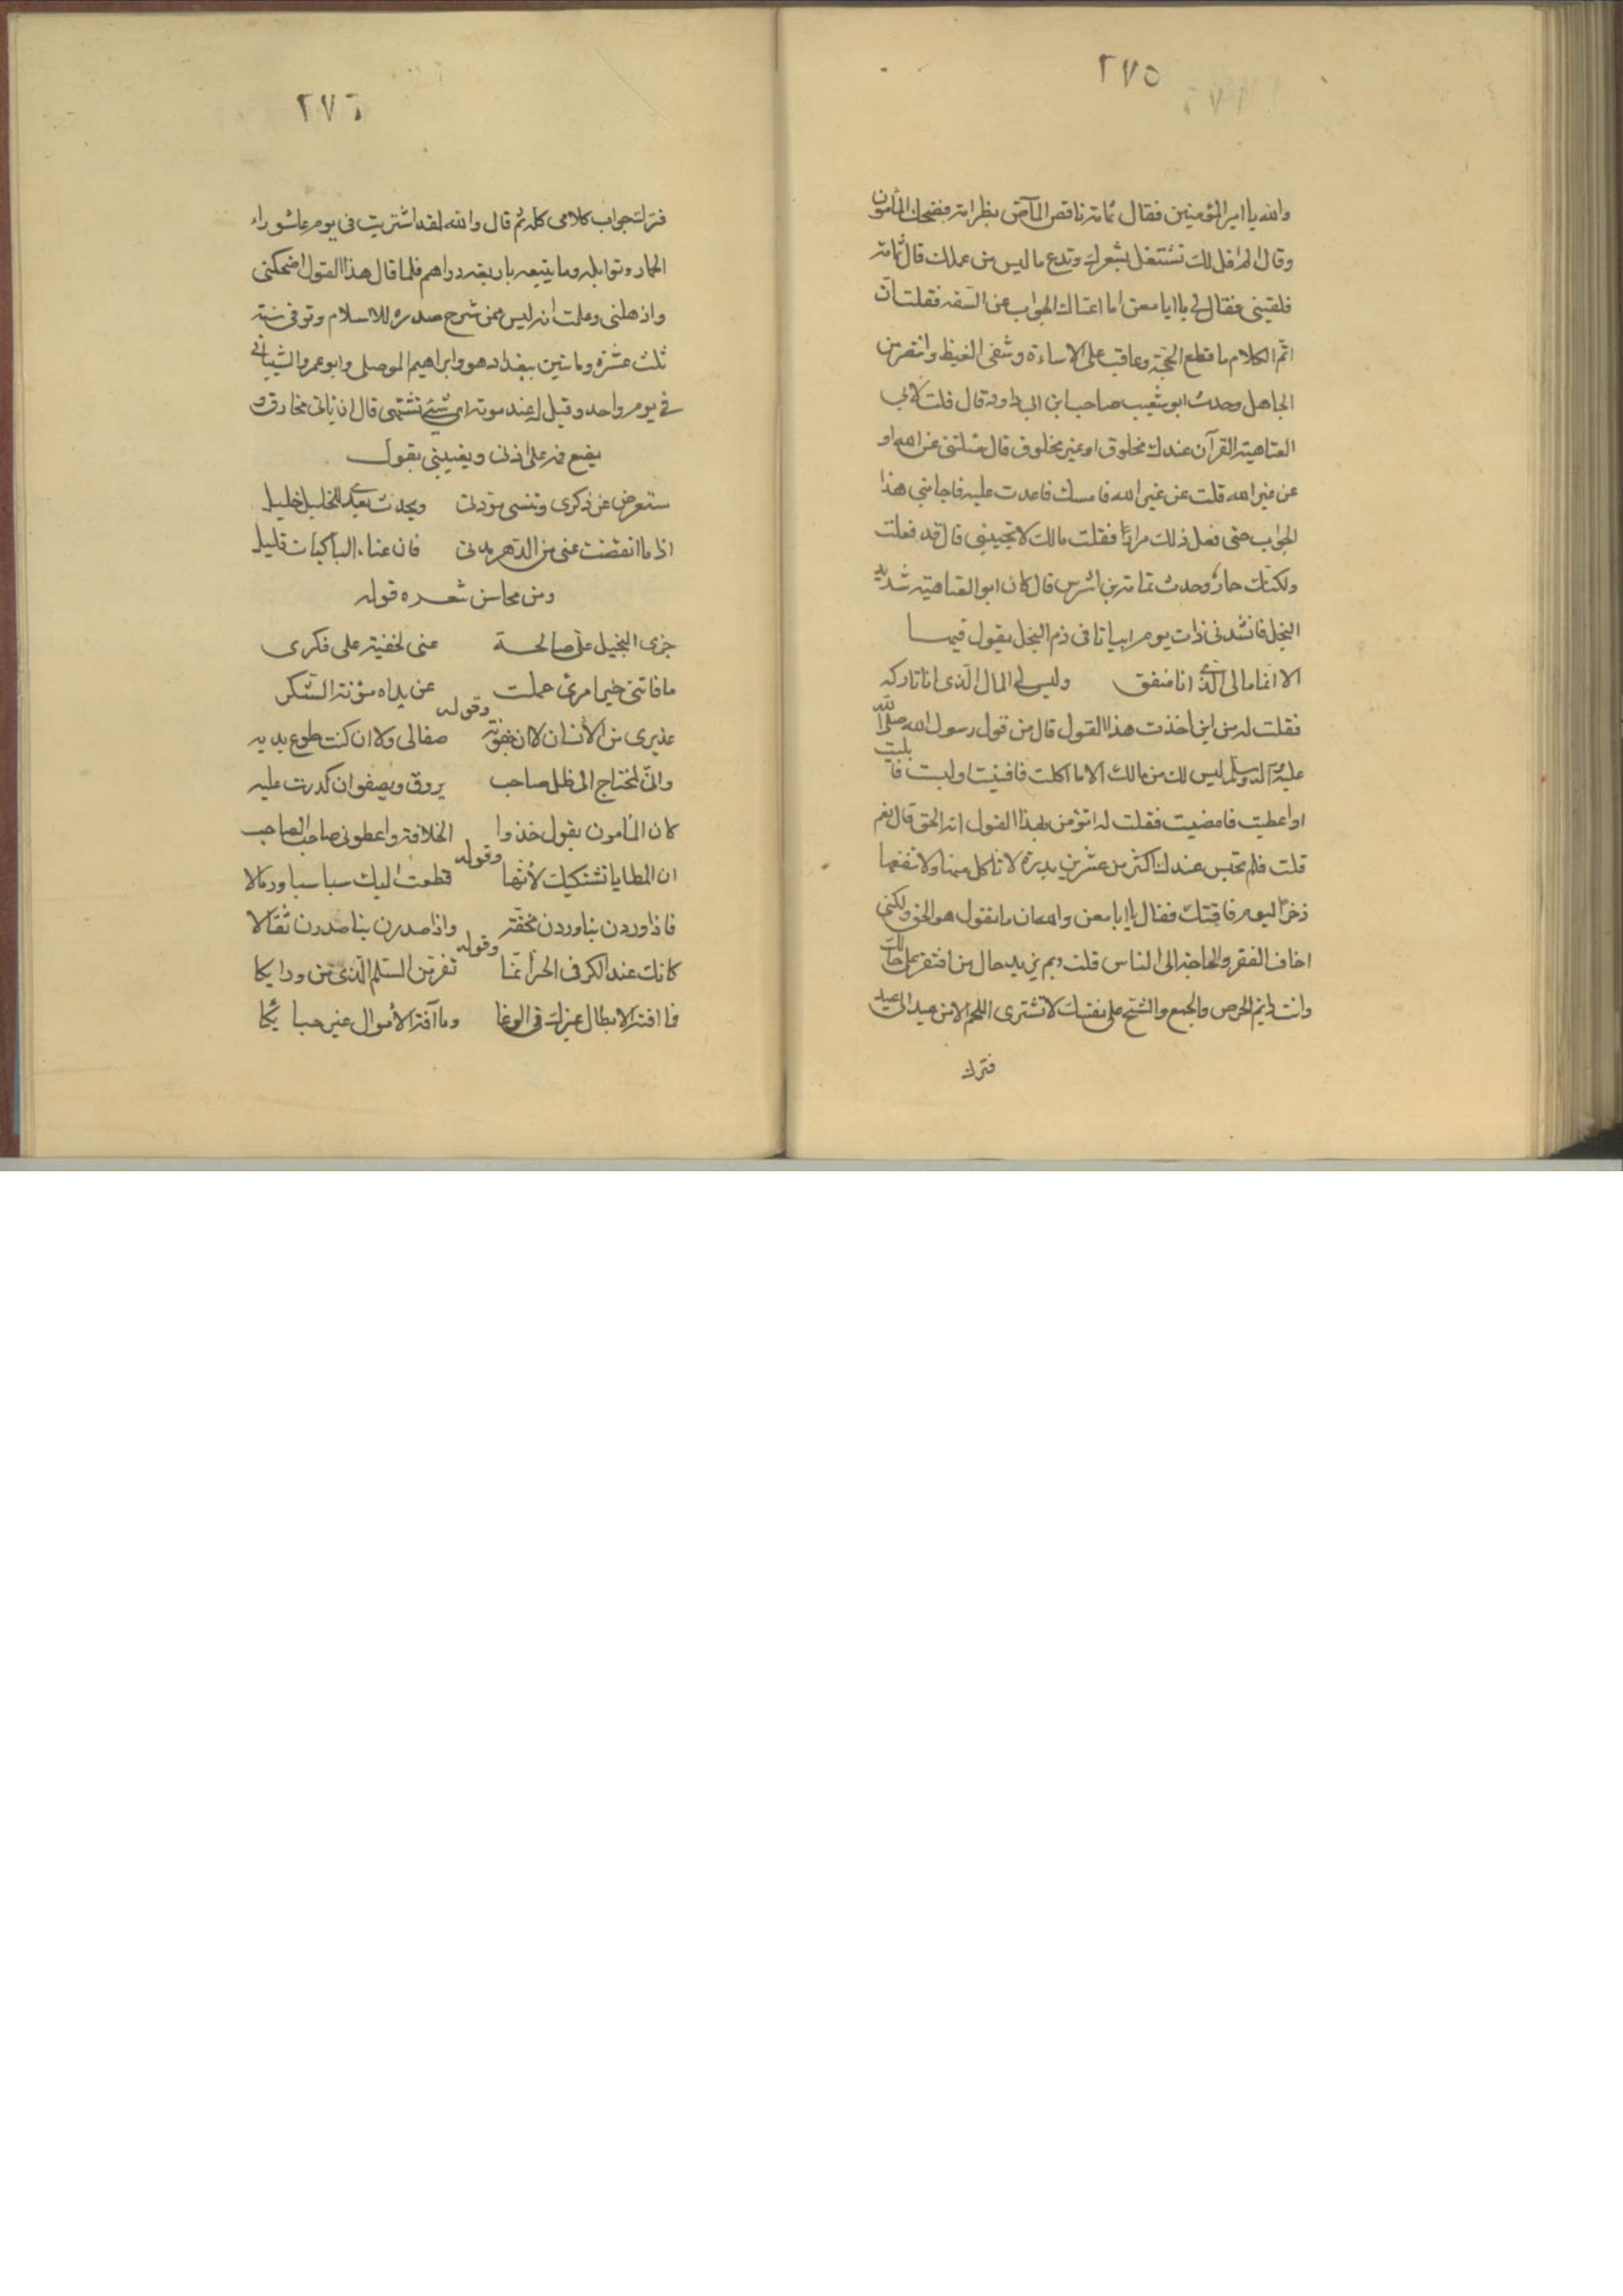 ٢٧٥
والله يا امير المؤمنين فقال ثمامة ناقص الماص بظر امه فضحك المأمون
وقال الم اقل لك تشتغل بشعرك وتدع ما ليس من عملك قال ثمامة
فلقيني فقال لي يا ابا معن اما اغناك الجواب عن السفه فقلت ان
اتم الكلام ما قطع الحجة وعاقب على الاساءة وشفى الغيظ وانتصر من
الجاهل وحدث ابو شعيب صاحب ابن ابي داود قال قلت لابي
العتاهية القرآن عندك مخلوق او غير مخلوق قال سئلتني عن الله او
عن غير الله قلت عن غير الله فامسك فاعدت عليه فاجابني هذا
الجواب حتى فعل ذلك مرارًا فقلت مالك لا تجيبني قال قد فعلت
ولكنك حمار وحدث ثمامة بن اشرس قال كان ابو العتاهية شديد
البخل فانشدني ذات يوم ابياتا في ذم البخل يقول فيها
الا انما مالي الذي انا منفق وليس لي المال الذي انا تاركه
فقلت له من اين اخذت هذا القول قال من قول رسول الله صلى الله
عليه وآله وسلم ليس لك من مالك الا ما اكلت فافنيت او لبست فا بليت
او اعطيت فامضيت فقلت له اتؤمن بهذا القول انه الحق قال نعم
قلت فلم تحبس عندك اكثر من عشرين بدرة لا تاكل منها ولا تنفقها
ذخرًا ليوم فاقتك فقال يا ابا معن والله ان ما تقول هو الحق ولكني
اخاف الفقر والحاجة الى الناس قلت وبم يزيد حال من افتقر على حالك
وانت دايم الحرص والجمع والشح على نفسك لا تشترى اللحم الا من عيد الى عيد
فترك
٢٧٦
فترك جواب كلامى كله ثم قال والله لقد اشتريت في يوم عاشوراء
لحما وتوابله وما يتبعه باربعة دراهم فلما قال هذا القول اضحكنى
واذهلنى وعلمت انه ليس ممن شرح صدره للاسلام وتوفى سنة
ثلث عشرة وماتين ببغداد هو وابراهيم الموصلى وابو عمرو الشيباني
في يوم واحد وقيل له عند موته اى شيء تشتهى قال ان ياتى مخارق و
يضع فمه على اذنى ويغنينى بقول
ستعرض عن ذكرى وتنسى مودتى ويحدث بعدى للخليل خليل
اذا ما انقضت عنى من الدهر مدتى فان غناء الباكيات قليل
ومن محاسن شعره قوله
جزى البخيل على صالحة عنى لخفته على فكرى
ما فاتنى خير امرئ حملت عنى يداه مؤنة الشكر
وقوله
عذيرى من الأنسان لا ان جفوته صفا لى ولا ان كنت طوع يديه
وانى لمحتاج الى ظل صاحب يروق ويصفو ان كدرت عليه
كان المأمون يقول خذوا الخلافة واعطونى صاحب الصاحب
وقوله
ان المطايا تشتكيك لأنها قطعت اليك سباسبا ورمالا
فاذا وردن بنا وردن مخفة واذا صدرن بنا صدرن ثقالا
وقوله
كانك عند الكر في الحرب انما تفر من السلم الذي من ورائكا
فما افة الابطال غيرك في الوغا وما آفة الأموال غير حبائكا